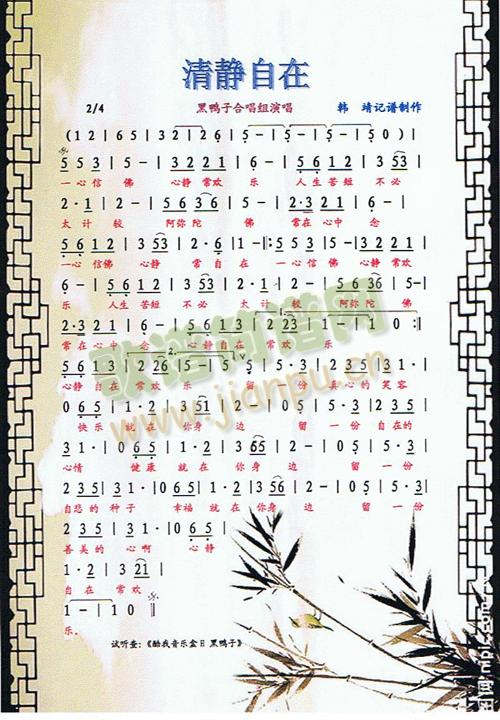 清静自在
2/4 黑鸭子合唱组演唱 韩 靖记谱制作
( 1 2 | 6 5 | 3 2 | 2 6 | 6 - | 5 - | 5 - | 5 - | 5 0 ) |
5 5 3 | 5 - | 3 2 2 1 | 6 - | 5 6 1 2 | 3 5 3 |
一心信 佛 心静 常欢 乐 人生 苦短 不必
2 · 1 | 2 - | 5 6 3 6 | 5 - | 2 · 3 2 1 | 6 - |
太 计 较 阿弥 陀 佛 常在 心中 念
5 6 1 2 | 3 5 3 | 2 · 6 | 1 - :| 5 5 3 | 5 - | 3 2 2 1 |
一心 信佛 心静 常 自 在 一心信 佛 心静 常欢
6 - | 5 6 1 2 | 3 5 3 | 2 · 1 | 2 - | 5 6 3 6 | 5 - |
乐 人生 苦短 不必 太 计 较 阿弥 陀 佛
2 · 3 2 1 | 6 - | 5 6 1 3 | 2 2 3 | 1 - | 1 0 :|
常在 心中 念 心静 自在 常 欢 乐
5 6 1 3 | 2 2 6 | 5 - | 5 - | 5 · 5 | 3 5 | 2 3 5 | 3 1 |
心静 自在 常 欢 乐 留 一份 真心的 笑容
0 6 5 | 1 · 2 | 3 5 1 | 2 - | 0 5 | 5 · 3 | 2 3 5 |
快乐 就 在 你身 边 留 一 份 自在的
3 1 · | 0 6 5 | 1 · 2 | 3 6 5 | 2 - | 0 5 | 5 · 3 |
心情 健康 就 在 你身 边 留 一份
2 3 5 | 3 1 · | 0 6 5 | 1 · 2 | 3 5 6 | 2 - | 0 5 | 5 · 3 |
自悲 的 种子 幸福 就 在 你身 边 留 一份
2 3 5 | 3 1 · | 0 6 5 |
善美 的 心啊 心静
1 · 2 | 3 2 1 |
自 在 常欢
1 - | 1 0 ||
乐.
试听壶:《酷我音乐盒日 黑鸭子》
歌谱简谱网
www.jianpu.cn